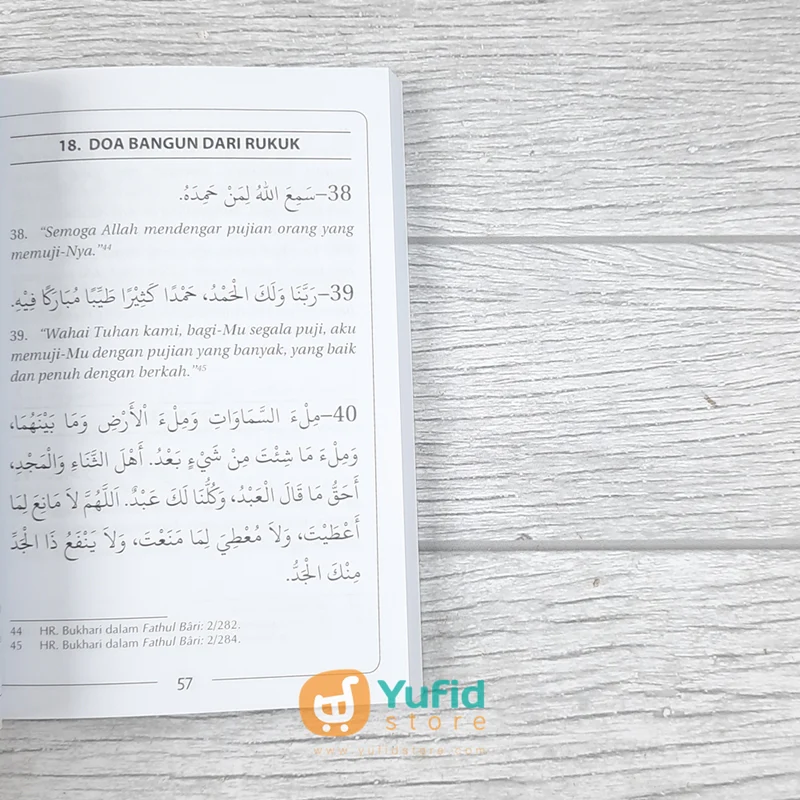 18. DOA BANGUN DARI RUKUK
38–سَمِعَ اللهُ لِمَنْ حَمِدَهُ.
38. “Semoga Allah mendengar pujian orang yang
memuji-Nya.”44
39–رَبَّنَا وَلَكَ الْحَمْدُ، حَمْدًا كَثِيْرًا طَيِّبًا مُبَارَكًا فِيْهِ.
39. “Wahai Tuhan kami, bagi-Mu segala puji, aku
memuji-Mu dengan pujian yang banyak, yang baik
dan penuh dengan berkah.”45
40–مِلْءَ السَّمَاوَاتِ وَمِلْءَ اْلأَرْضِ وَمَا بَيْنَهُمَا،
وَمِلْءَ مَا شِئْتَ مِنْ شَيْءٍ بَعْدُ. أَهْلَ الثَّنَاءِ وَالْمَجْدِ،
أَحَقُّ مَا قَالَ الْعَبْدُ، وَكُلُّنَا لَكَ عَبْدٌ. اَللَّهُمَّ لاَ مَانِعَ لِمَا
أَعْطَيْتَ، وَلاَ مُعْطِيَ لِمَا مَنَعْتَ، وَلاَ يَنْفَعُ ذَا الْجَدِّ
مِنْكَ الْجَدُّ.
44 HR. Bukhari dalam Fathul Bâri: 2/282.
45 HR. Bukhari dalam Fathul Bâri: 2/284.
57
Yufid
store
www.yufidstore.com